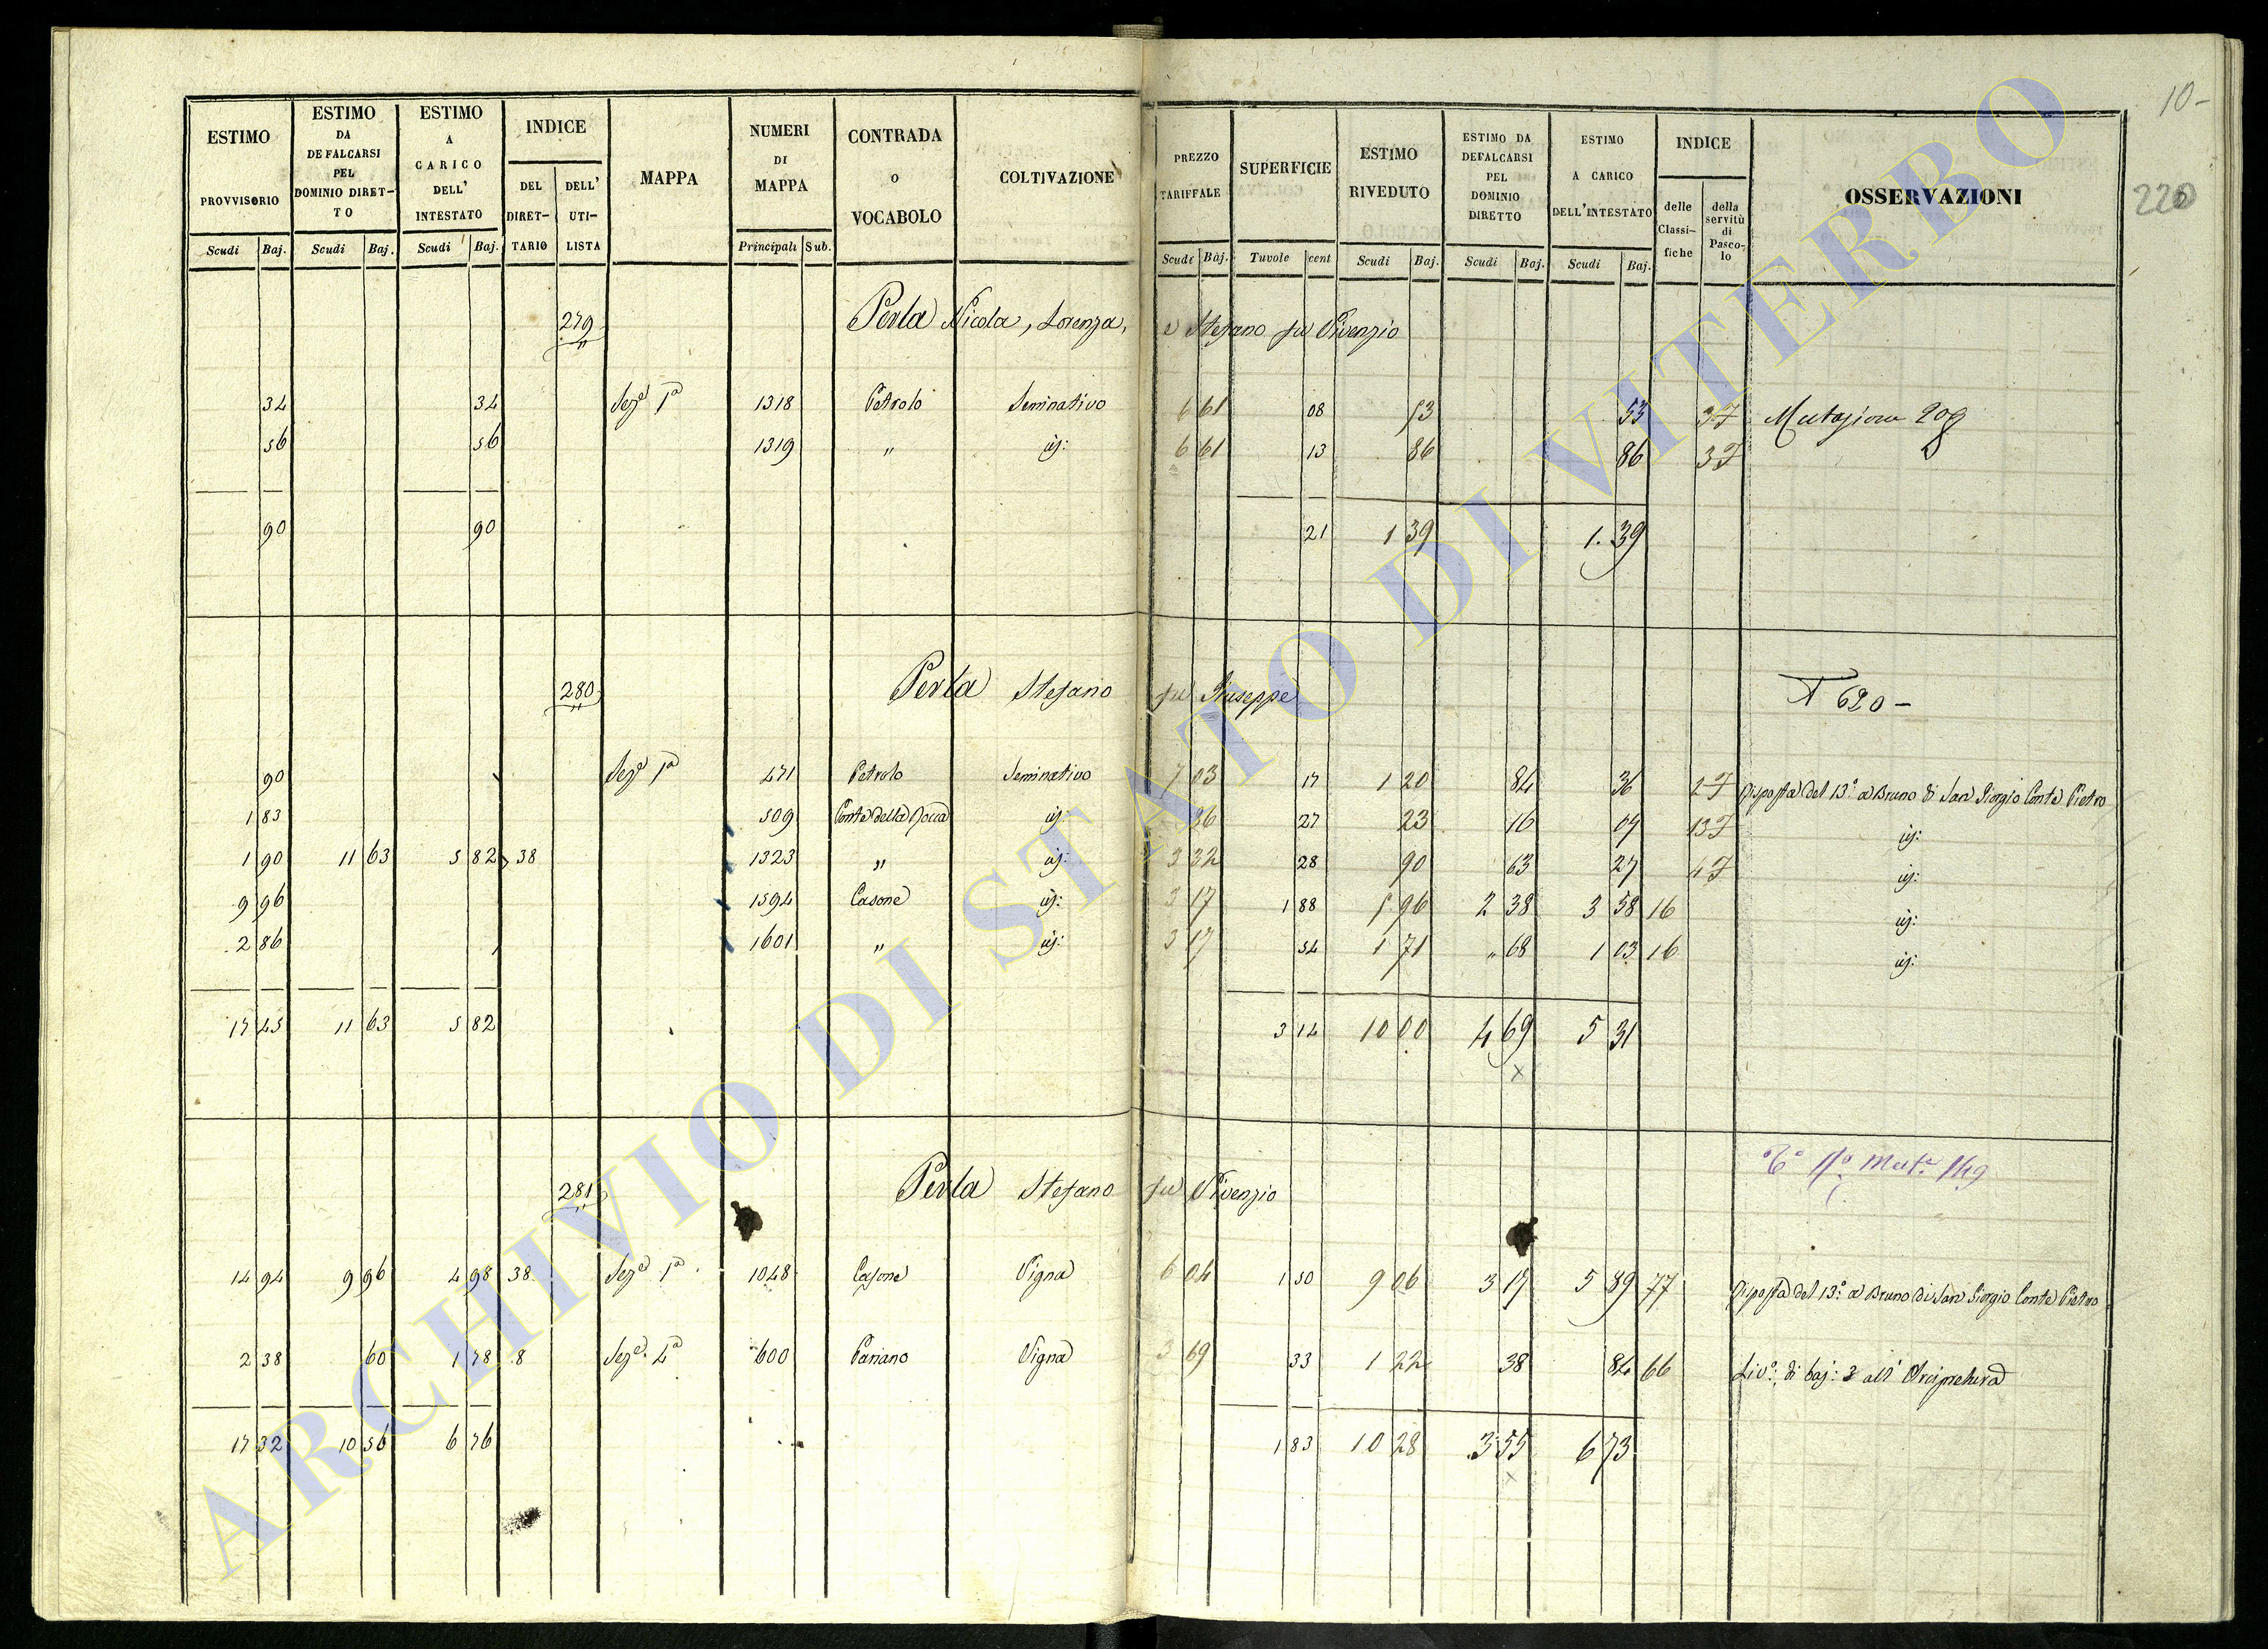 10-
220
ESTIMO PROVVISORIO | ESTIMO DA DEFALCARSI PEL DOMINIO DIRET-TO | ESTIMO A CARICO DELL' INTESTATO | INDICE | MAPPA | NUMERI DI MAPPA | CONTRADA O VOCABOLO | COLTIVAZIONE | PREZZO TARIFFALE | SUPERFICIE | ESTIMO RIVEDUTO | ESTIMO DA DEFALCARSI PEL DOMINIO DIRETTO | ESTIMO A CARICO DELL'INTESTATO | INDICE | OSSERVAZIONI
DEL DIRET-TARIO | DELL' UTI-LISTA | delle Classi-fiche | della servitù di Pasco-lo
Scudi Baj. | Scudi Baj. | Scudi Baj. | Principali Sub. | Scudi Baj. | Tavole cent | Scudi Baj. | Scudi Baj. | Scudi Baj.
279 Perla Nicola, Lorenza, e Stefano fu Vivenzio
34 | 34 | Sez.e 1a | 1318 | Petrolo | Seminativo | 6 61 | 08 | 53 | 53 | Mutazione 209
56 | 56 | 1319 | " | id: | 6 61 | 13 | 86 | 86
90 | 90 | 21 | 1 39 | 1. 39
280 Perla Stefano fu Giuseppe
N 620 -
90 | Sez.e 1a | 471 | Petrolo | Seminativo | 7 03 | 17 | 1 20 | 84 | 36 | Risposta del 13° a Bruno di San Giorgio Conte Pietro
1 83 | 509 | Conte della Rocca | id: | 27 | 23 | 16 | 07 | id:
1 90 | 11 63 | 5 82 | 38 | 1323 | " | id: | 3 22 | 28 | 90 | 63 | 27 | id:
9 96 | 1594 | Casone | id: | 3 17 | 1 88 | 5 96 | 2 38 | 3 58 | 16 | id:
2 86 | 1601 | " | id: | 3 17 | 54 | 1 71 | " 68 | 1 03 | 16 | id:
17 45 | 11 63 | 5 82 | 3 14 | 10 00 | 4 69 | 5 31
x
Mut.e 149
281 Perla Stefano fu Vivenzio
14 94 | 9 96 | 4 98 | 38 | Sez.e 1a | 1048 | Casone | Vigna | 6 04 | 1 50 | 9 06 | 3 17 | 5 89 | 77 | Risposta del 13° a Bruno di San Giorgio Conte Pietro
2 38 | 60 | 1 78 | 8 | Sez.e 4a | 600 | Pariano | Vigna | 3 69 | 33 | 1 22 | 38 | 84 | 66 | Liv.o di baj: 3 all' Arcipretura
17 32 | 10 56 | 6 76 | 1 83 | 10 28 | 3 55 | 6 73
x
ARCHIVIO DI STATO DI VITERBO